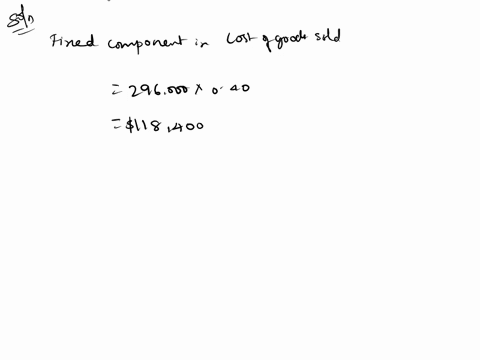 Sol
Fixed component in cost of goods sold
= 296.000 x 0.40
= $118,400